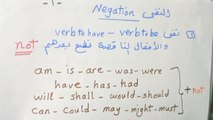 - 1 -
Negation النفى
① نفى verb to have – verb to be
not والأفعال الناقصة نضع بعدهم
am – is – are – was – were
have – has – had
will – shall – would – should
can – could – may – might – must
+ not